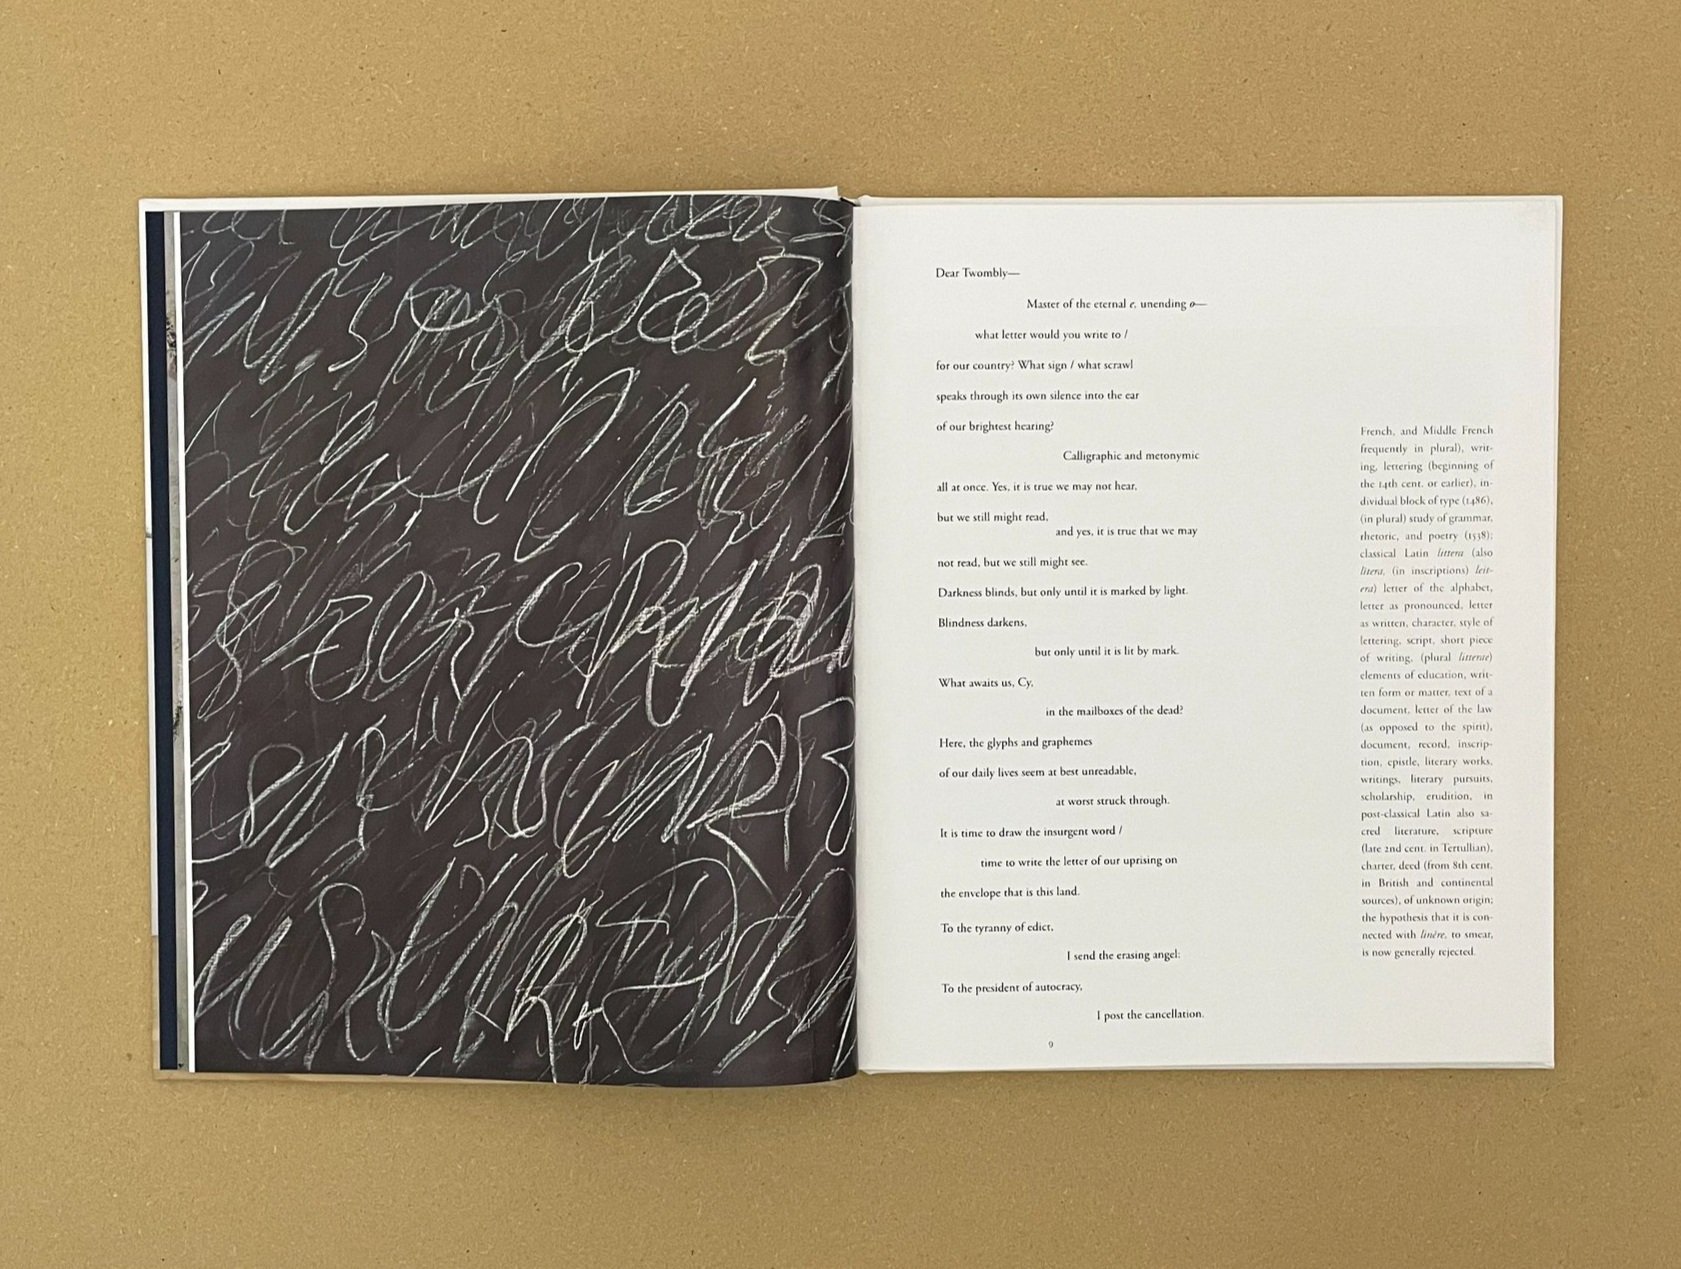 Dear Twombly—
Master of the eternal e, unending o—
what letter would you write to /
for our country? What sign / what scrawl
speaks through its own silence into the ear
of our brightest hearing?
Calligraphic and metonymic
all at once. Yes, it is true we may not hear,
but we still might read,
and yes, it is true that we may
not read, but we still might see.
Darkness blinds, but only until it is marked by light.
Blindness darkens,
but only until it is lit by mark.
What awaits us, Cy,
in the mailboxes of the dead?
Here, the glyphs and graphemes
of our daily lives seem at best unreadable,
at worst struck through.
It is time to draw the insurgent word /
time to write the letter of our uprising on
the envelope that is this land.
To the tyranny of edict,
I send the erasing angel:
To the president of autocracy,
I post the cancellation.
9
French, and Middle French
frequently in plural), writ-
ing, lettering (beginning of
the 14th cent. or earlier), in-
dividual block of type (1486),
(in plural) study of grammar,
rhetoric, and poetry (1538);
classical Latin littera (also
litera, (in inscriptions) leit-
era) letter of the alphabet,
letter as pronounced, letter
as written, character, style of
lettering, script, short piece
of writing, (plural litterae)
elements of education, writ-
ten form or matter, text of a
document, letter of the law
(as opposed to the spirit),
document, record, inscrip-
tion, epistle, literary works,
writings, literary pursuits,
scholarship, erudition, in
post-classical Latin also sa-
cred literature, scripture
(late 2nd cent. in Tertullian),
charter, deed (from 8th cent.
in British and continental
sources), of unknown origin;
the hypothesis that it is con-
nected with linēre, to smear,
is now generally rejected.